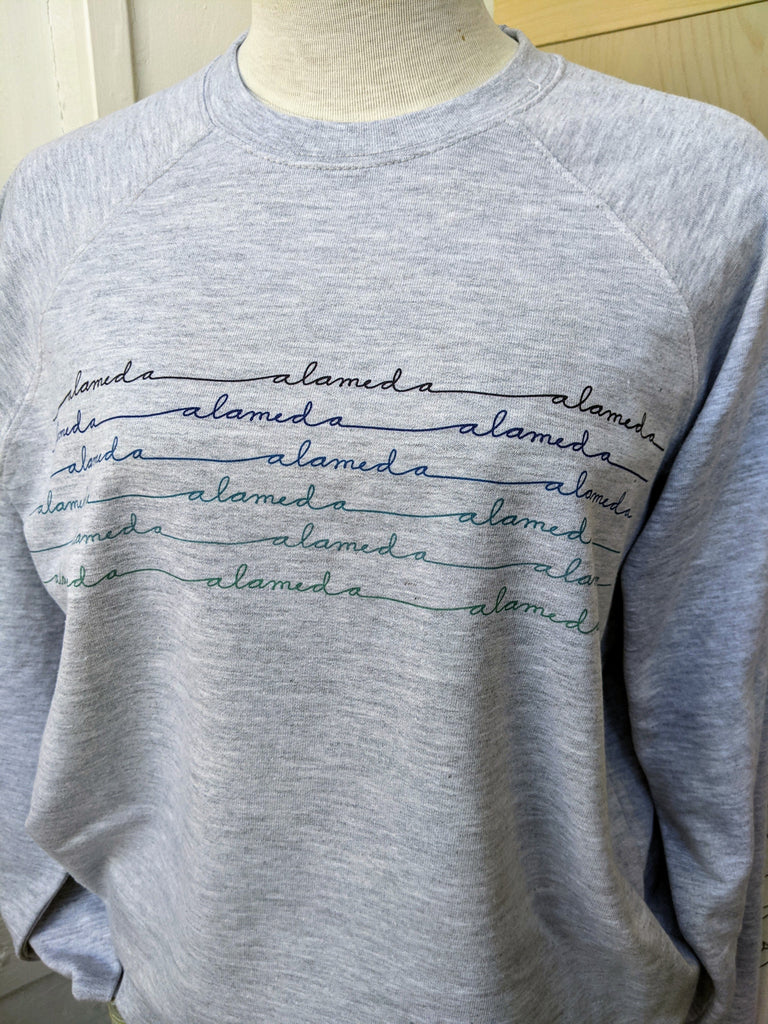 alameda alameda alameda
meda alameda alameda
alameda alameda alameda
alame alameda alamed
ameda alameda ala
alameda alamed